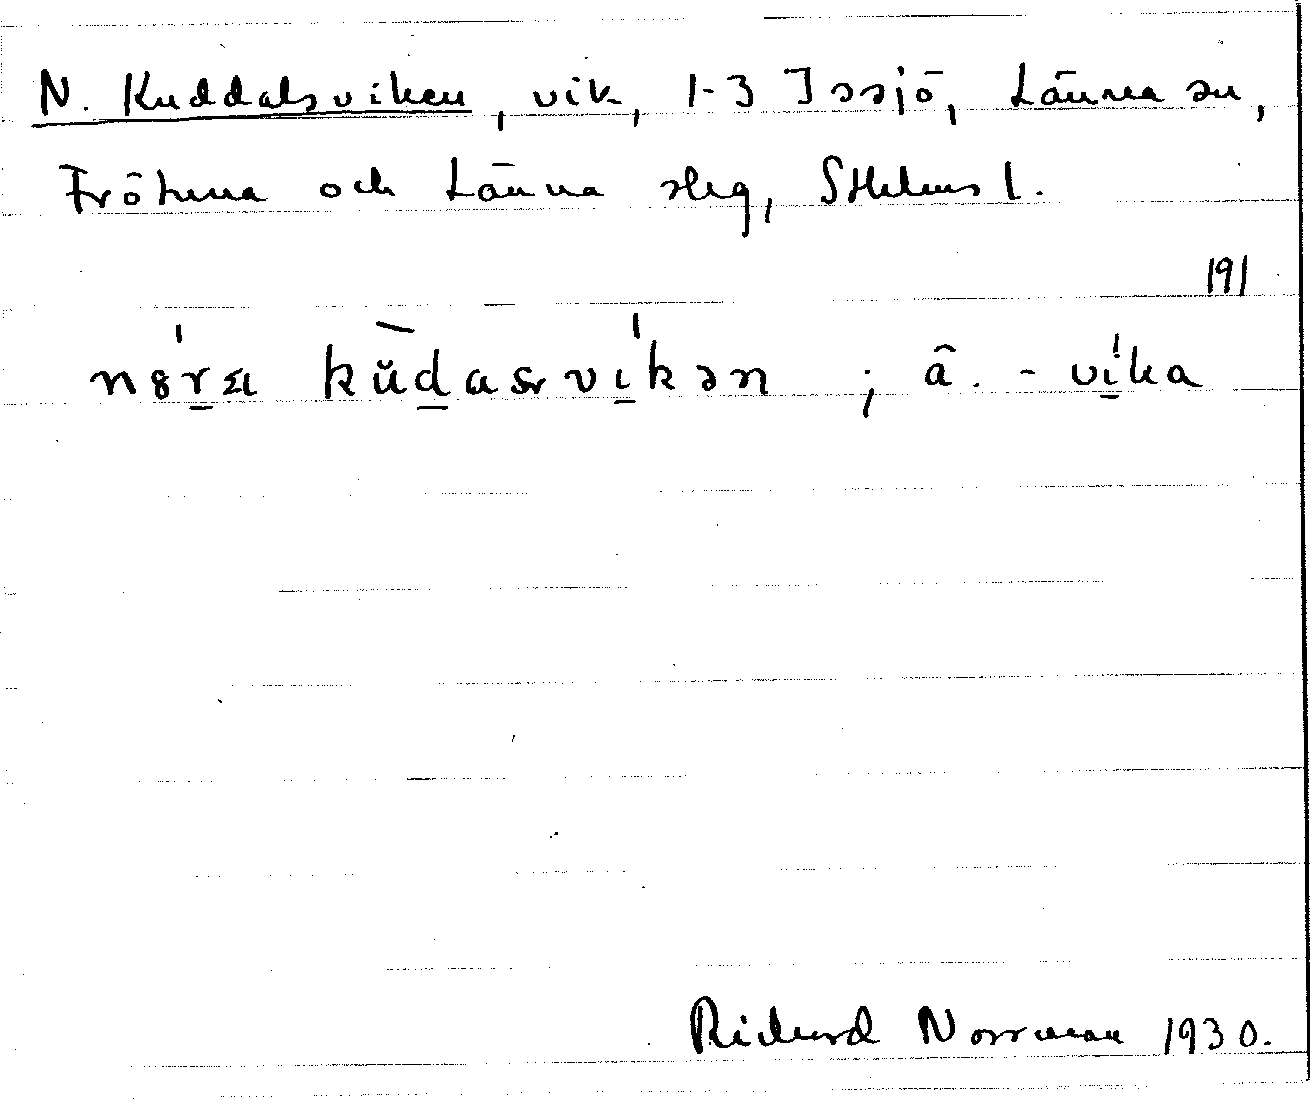 N. Kuddalsviken, vik, 1-3 Issjö, Länna sn,
Frötuna och Länna slg, Sthlms l.
191
vikən ; ä. - vika
Richard Norrman 1930.